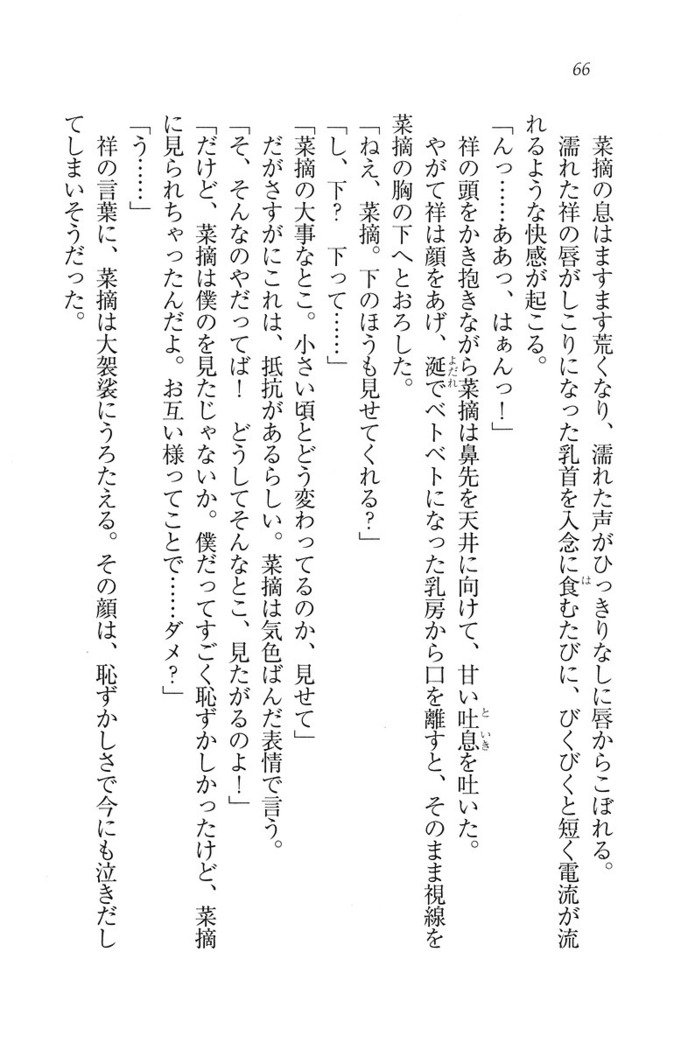 66
菜摘の息はますます荒くなり、濡れた声がひっきりなしに唇からこぼれる。
濡れた祥の唇がしこりになった乳首を入念に食むたびに、びくびくと短く電流が流
れるような快感が起こる。
「んっ……ああっ、はぁんっ！」
祥の頭をかき抱きながら菜摘は鼻先を天井に向けて、甘い吐息を吐いた。
やがて祥は顔をあげ、涎でベトベトになった乳房から口を離すと、そのまま視線を
菜摘の胸の下へとおろした。
「ねえ、菜摘。下のほうも見せてくれる？」
「し、下？　下って……」
「菜摘の大事なとこ。小さい頃とどう変わってるのか、見せて」
だがさすがにこれは、抵抗があるらしい。菜摘は気色ばんだ表情で言う。
「そ、そんなのやだってば！　どうしてそんなとこ、見たがるのよ！」
「だけど、菜摘は僕のを見たじゃないか。僕だってすごく恥ずかしかったけど、菜摘
に見られちゃったんだよ。お互い様ってことで……ダメ？」
「う……」
祥の言葉に、菜摘は大袈裟にうろたえる。その顔は、恥ずかしさで今にも泣きだし
てしまいそうだった。